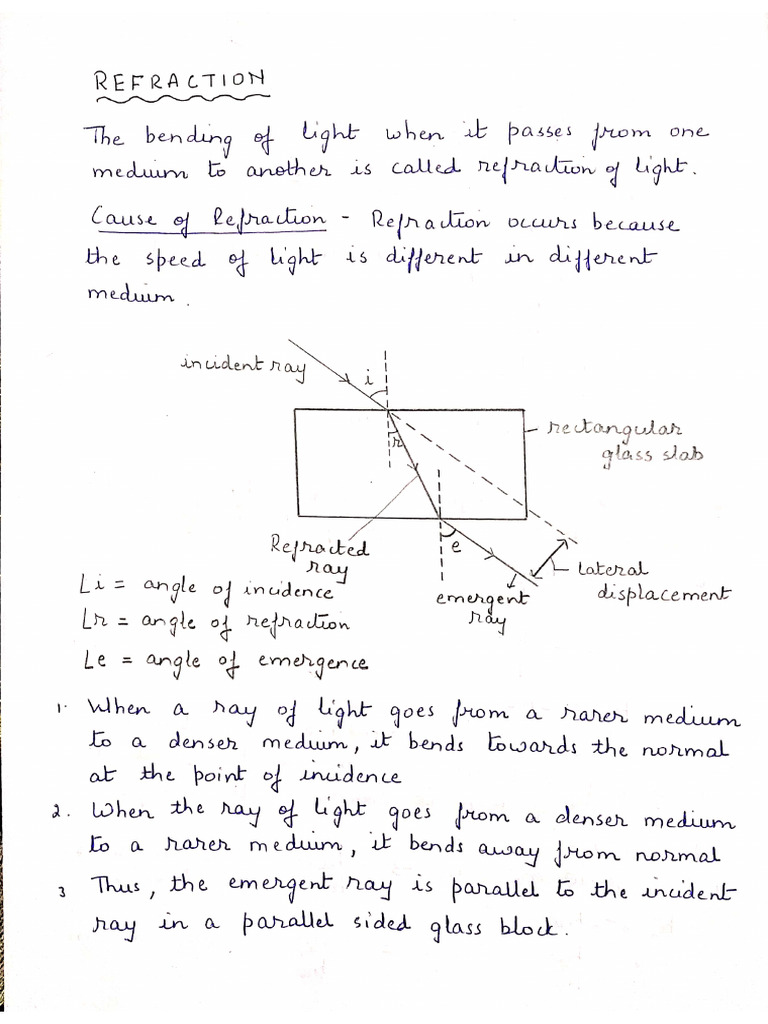 REFRACTION
The bending of light when it passes from one
medium to another is called refraction of light.
Cause of Refraction - Refraction occurs because
the speed of light is different in different
medium.
incident ray
i
rectangular
glass slab
r
Refracted
ray
e
lateral
displacement
emergent
ray
∠i = angle of incidence
∠r = angle of refraction
∠e = angle of emergence
1. When a ray of light goes from a rarer medium
to a denser medium, it bends towards the normal
at the point of incidence
2. When the ray of light goes from a denser medium
to a rarer medium, it bends away from normal
3 Thus, the emergent ray is parallel to the incident
ray in a parallel sided glass block.